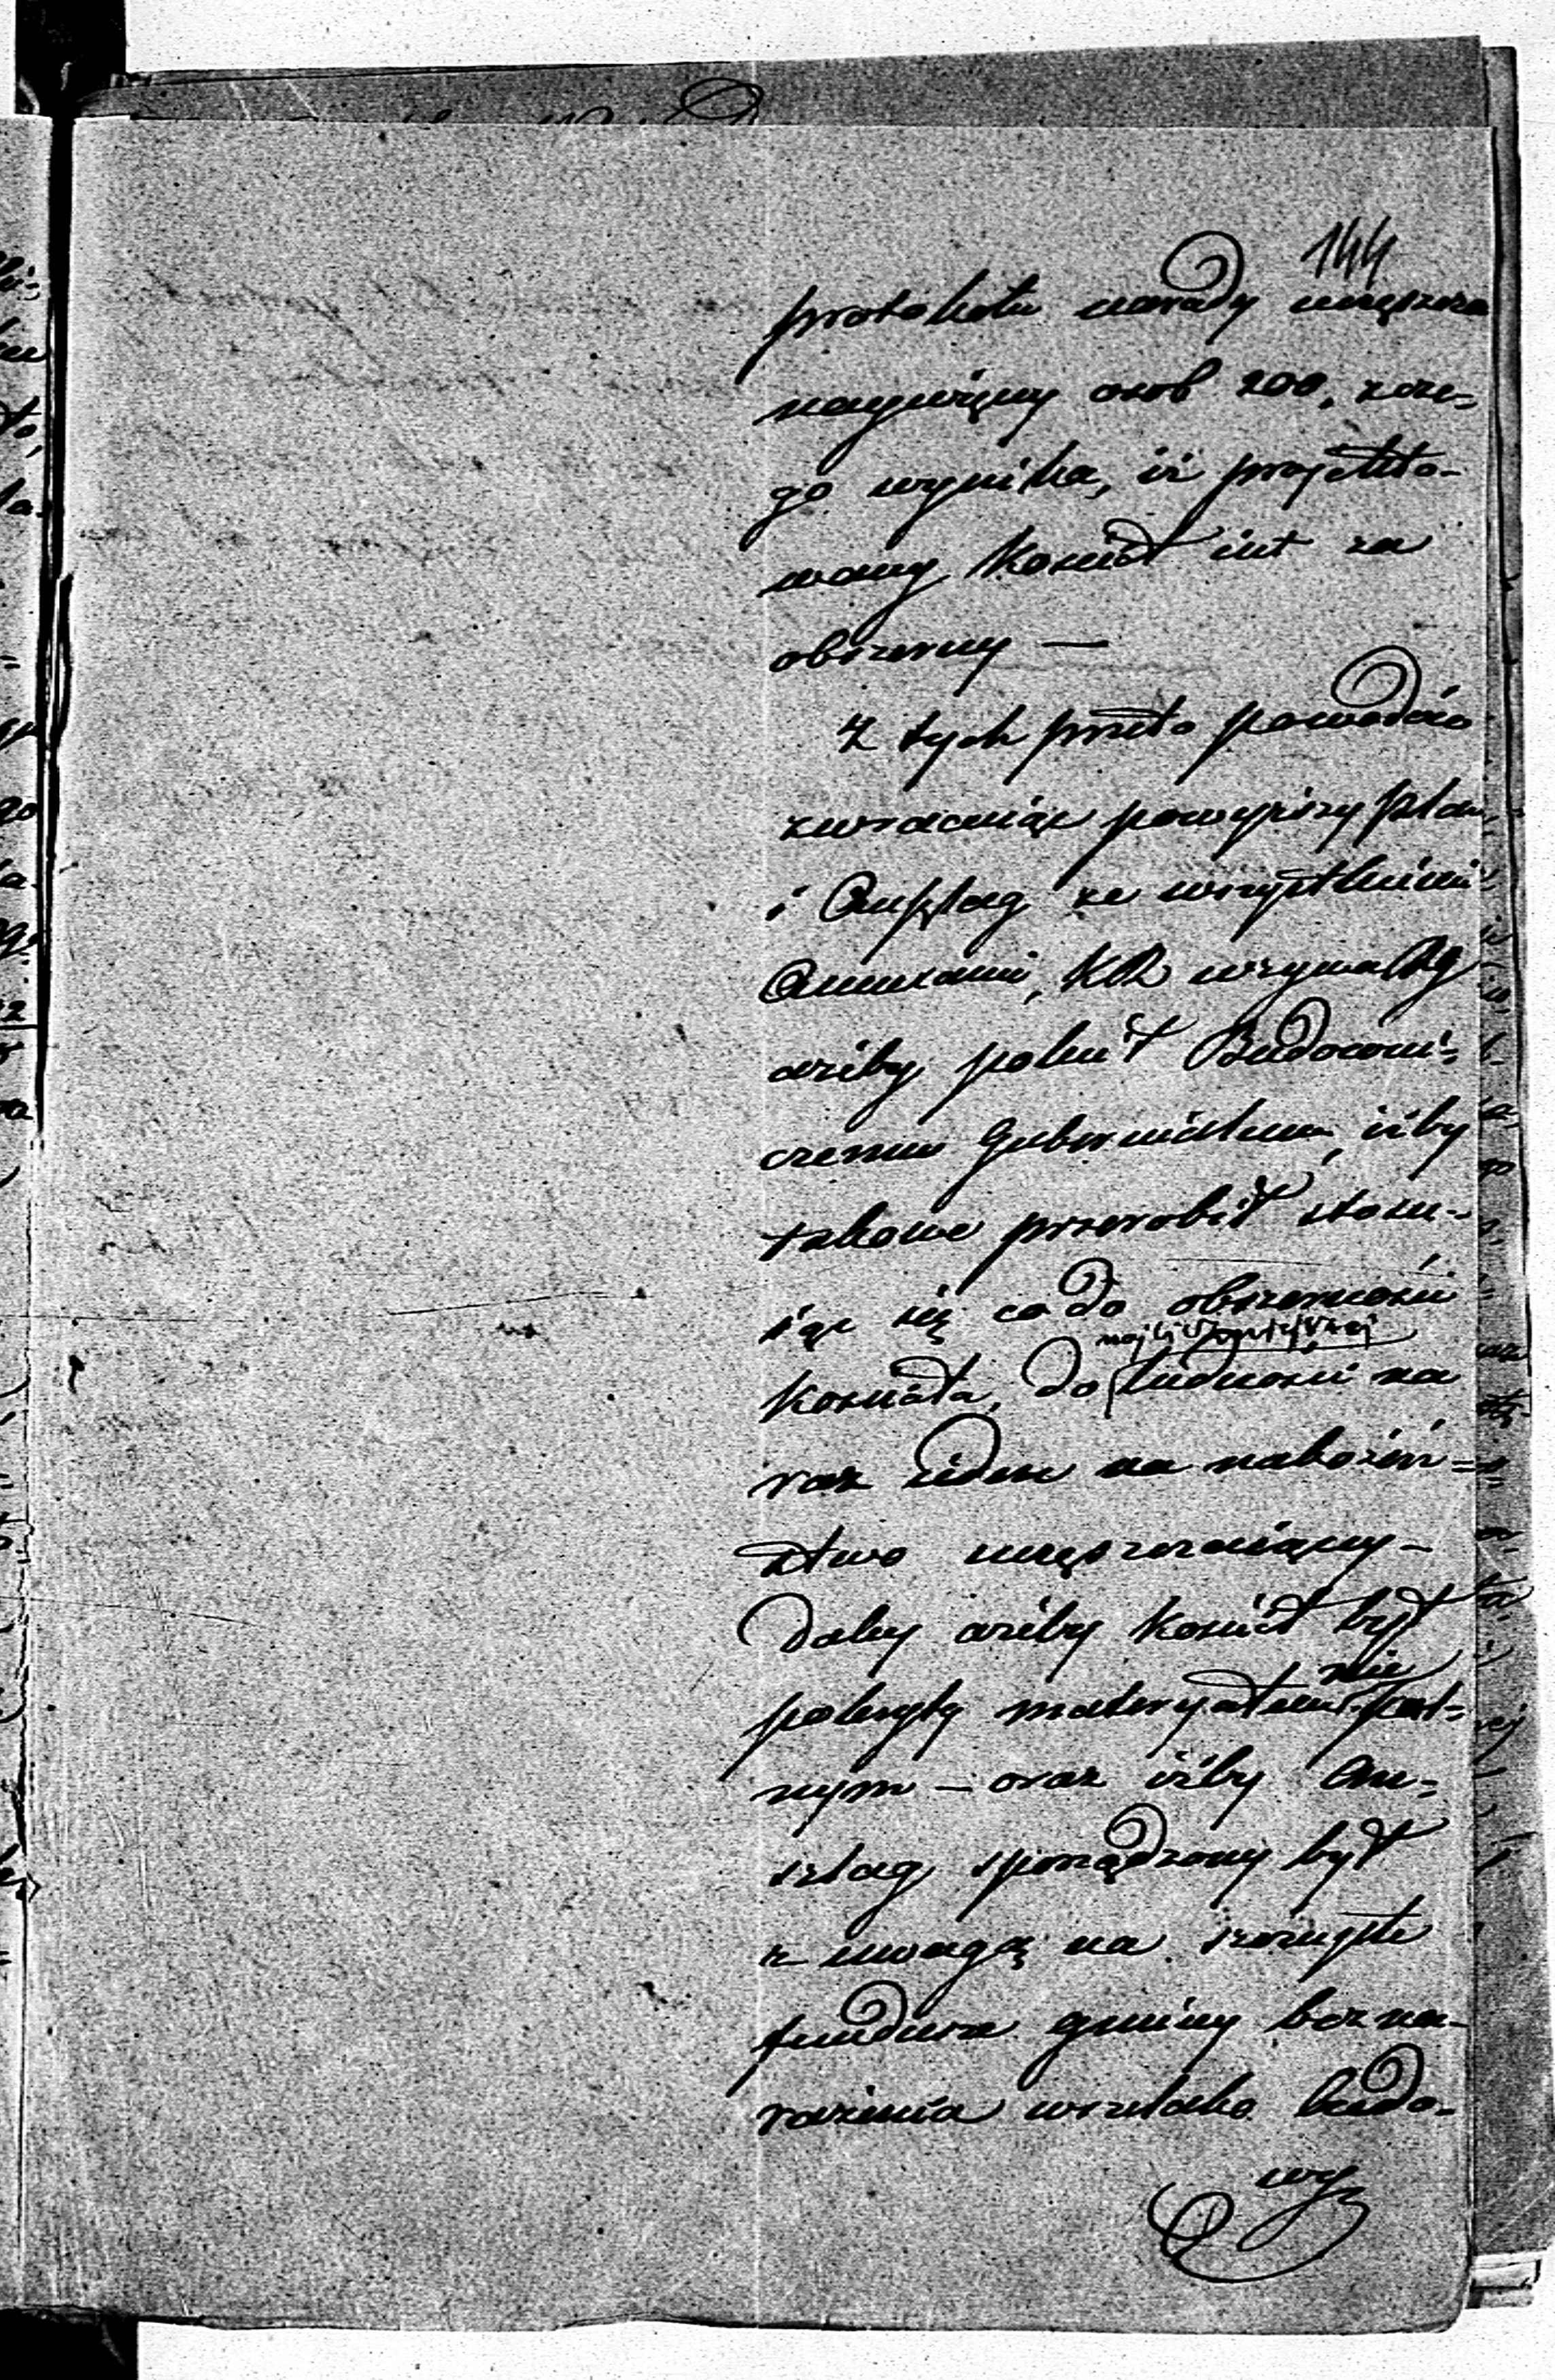 144
protokołu narady uczęszcza
naywięcey osob 200, z cze-
go wynika, iż projekto-
wany Kościół iest za
obszerny —
Z tych przeto powodów
zwracaiąc powyższy plan
i Anszlag ze wszystkiemi
Annexami, KR wzywa RG
ażeby polecił Budowni-
czemu Gubernialnemu, iżby
takowe przerobił stosu-
iąc się co do obszerności
najliczniejszej
Kościoła, do ludności na
raz ieden na nabożeń-
stwo uczęszczaiącey —
Daley ażeby Kościół był
nie
pokryty materyałem pal-
nym — oraz iżby An-
szlag sporządzony był
z uwagą na szczupłe
fundusze gminy bez na-
rażenia wszelako budo-
wy